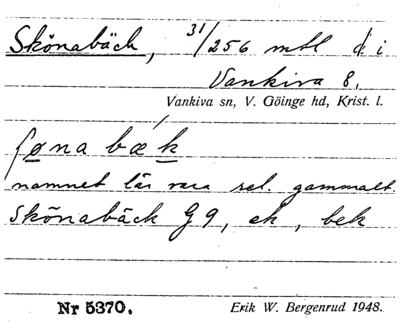 Skönabäck, 31/256 mtl i
Vankiva 8.
Vankiva sn, V. Göinge hd, Krist. l.
ʃøna bæ´k
namnet lär vara rel. gammalt.
Skönabäck G9, ek, bek
Nr 5370. Erik W. Bergenrud 1948.